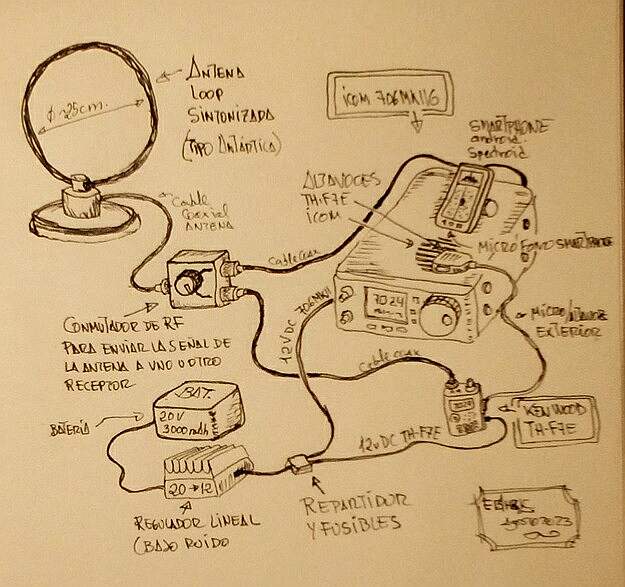 ø ~25cm.
ANTENA
LOOP
SINTONIZADA
(TIPO ANTÁRTICA)
Cable
coaxial
ANTENA
icom 706MKIIG
SMARTPHONE
android
Spectroid
ALTAVOCES
TH-F7E
icom
MICRÓFONO SMARTPHONE
Cable coax
CONMUTADOR DE RF
PARA ENVIAR LA SEÑAL DE
LA ANTENA A UNO U OTRO
RECEPTOR
12V DC 706MKII
7024
MICRO/ALTAVOZ
EXTERIOR
cable coax
BATERÍA
BAT.
20V
3000mAh
7024
KENWOOD
TH-F7E
12V DC TH-F7E
20→12
REGULADOR LINEAL
(BAJO RUIDO
REPARTIDOR
Y FUSIBLES
Agosto 2023